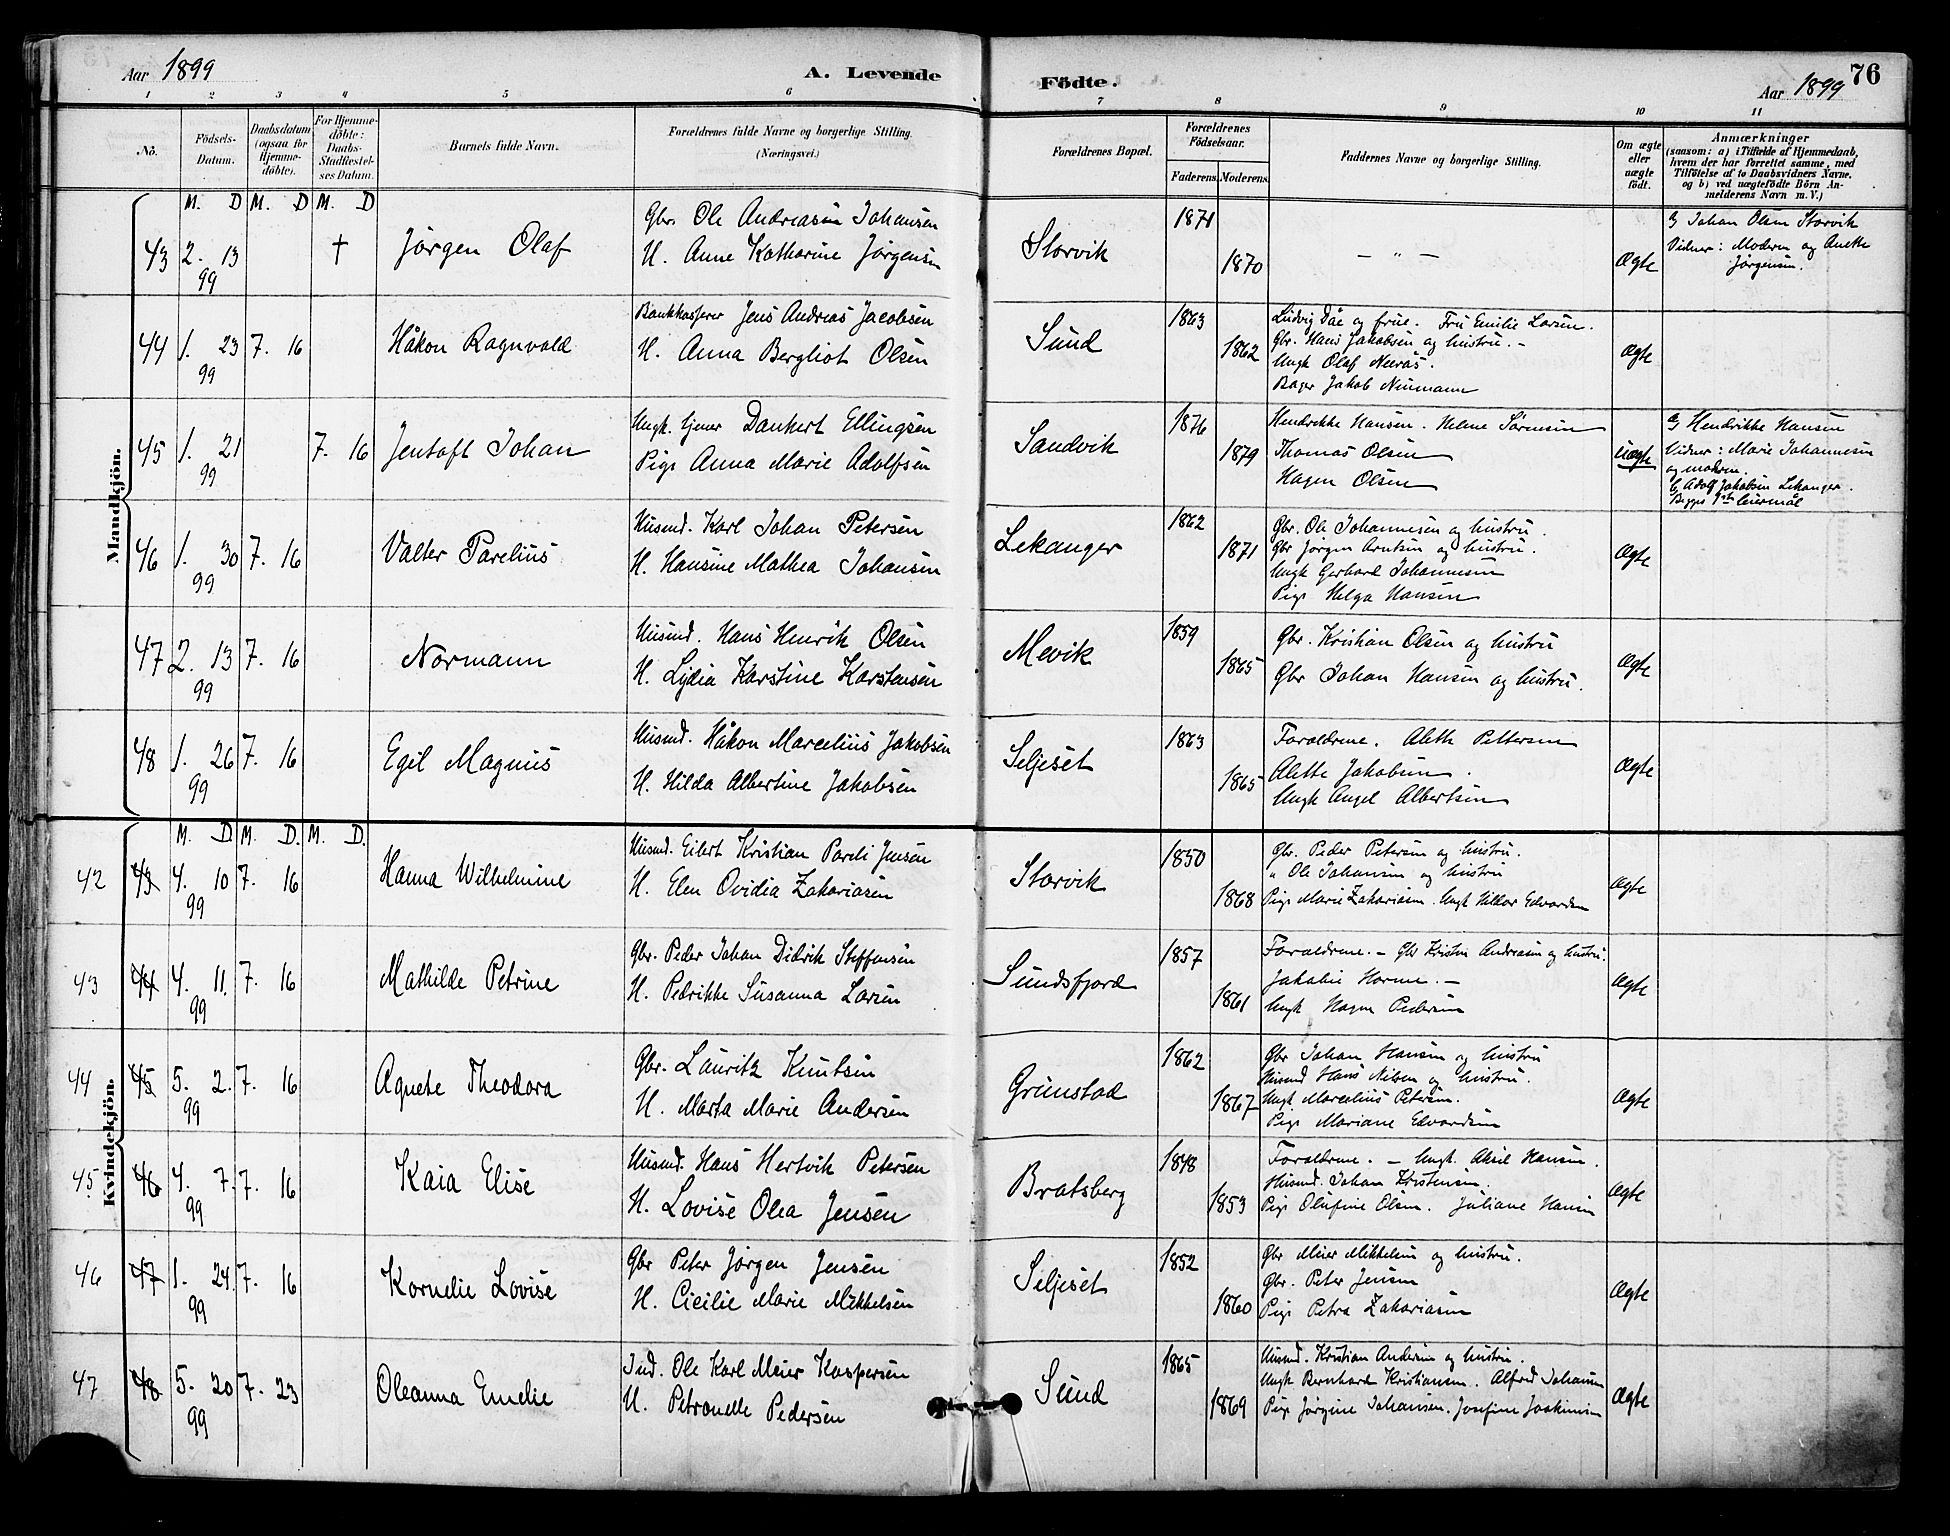 Aar 1899
A. Levende
Födte.
Aar 1899
76
1 2 3 4 5 6 7 8 9 10 11
No.
Födsels-Datum.
Daabsdatum (ogsaa for Hjemme-døbte).
For Hjemme-døbte: Daabs-Stadfæstel-ses Datum.
Barnets fulde Navn.
Forældrenes fulde Navne og borgerlige Stilling. (Næringsvei.)
Forældrenes Bopæl.
Forældrenes Födselsaar.
Faderens. Moderens.
Faddernes Navne og borgerlige Stilling.
Om ægte eller uægte født.
Anmærkninger
(saasom: a) i Tilfælde af Hjemmedaab, hvem der har forrettet samme, med Tilföielse af to Daabsvidners Navne, og b) ved uægtefödte Börn An-melderens Navn m. V.)
Mandkjön.
M. D M. D M. D
43 2. 13 99 † Jørgen Olaf
Gbr. Ole Andreasen Johansen
H. Anne Katharine Jørgensen
Storvik 1871 1870
— " —
Ægte
a) Johan Olsen Storvik
Vidner: Moderen og Anette
Jørgensen.
44 1. 23 99 7. 16 Håkon Ragnvald
Bankkasserer Jens Andreas Jacobsen
H. Anna Bergliot Olsen
Sund 1863 1862
Ludvig Dåe og frue. Fru Emilie Larsen.
Gbr. Hans Jakobsen og hustru. -
Ungk Olaf Neerås.
Bager Jakob Neumann
Ægte
45 1. 21 99 7. 16 Jentoft Johan
Ungk. tjener Dankert Ellingsen
Pige Anna Marie Adolfsen
Sandvik 1876 1879
Hendrikke Hansen. Helene Sørensen
Thomas Olsen
Hagen Olsen
uægte
a) Hendrikke Hansen
Vidner: Marie Johannesen
og moderen.
b) Adolf Jakobsen Lekanger.
Begges 1ste leiermål
46 1. 30 99 7. 16 Valter Parelius
Husmd. Karl Johan Petersen
H. Hansine Mathea Johansen
Lekanger 1862 1871
Gbr. Ole Johannesen og hustru.
Gbr Jørgen Arntsen og hustru.
Ungk Gerhard Johannesen
Pige Helga Hansen
Ægte
47 2. 13 99 7. 16 Normann
Husmd. Hans Henrik Olsen
H. Lydia Karstine Karstensen
Mevik 1859 1865
Gbr. Kristian Olsen og hustru
Gbr Johan Hansen og hustru.
Ægte
48 1. 26 99 7. 16 Egil Magnus
Husmd. Håkon Marcelius Jakobsen
H. Hilda Albertine Jakobsen
Seljeset 1863 1865
Forældrene. Aleth Pettersen
Alette Jakobsen.
Ungk Angel Albertsen
Ægte
Kvindekjön.
M. D. M. D. M. D.
42 43 4. 10 99 7. 16 Hanna Wilhelmine
Husmd. Eilert Kristian Pareli Jensen
H. Elen Ovidia Zakariasen
Storvik 1850 1868
Gbr. Peder Petersen og hustru.
" Ole Johansen og hustru
Pige Marie Zakariasen. Ungk Hildor Edvardsen
Ægte
43 44 4. 11. 99 7. 16 Mathilde Petrine
Gbr. Peder Johan Didrik Steffensen
H. Pedrikke Susanna Larsen
Sundsfjord 1857 1861
Forældrene. - Gbr Kristen Andreasen og hustru.
Jakobine Horme. -
Ungk Hagen Pedersen
Ægte
44 45 5. 2. 99 7. 16 Agnete Theodora
Gbr. Lauritz Knutsen
H. Marta Marie Andersen
Grimstad 1862 1867
Gbr Johan Hansen og hustru
Husmd Hans Nilsen og hustru.
Ungk Marcelius Petersen.
Pige Mariane Edvardsen
Ægte
45 46 4. 7. 99 7. 16 Kaia Elise
Husmd. Hans Hertvik Petersen
H. Lovise Olea Jensen
Bratsberg 1848 1853
Forældrene. - Ungk. Aksel Hansen.
Husmd. Johan Kristensen.
Pige Olufine Olsen. Juliane Hansen
Ægte
46 47 1. 24. 99 7. 16 Kornelie Lovise
Gbr Peter Jørgen Jensen
H. Cicilie Marie Mikkelsen
Seljeset 1852 1860
Gbr Meier Mikkelsen og hustru.
Gbr. Peter Jensen
Pige Petra Zakariasen
Ægte
47 48 5. 20 99 7. 23 Oleanna Emelie
Ind. Ole Karl Meier Kaspersen
H. Petronelle Pedersen
Sund 1865 1869
Husmd. Kristian Andersen og hustru.
Ungk Bernhard Kristiansen. Alfred Johansen
Pige Jørgine Johansen. Josefine Joakimsen
Ægte